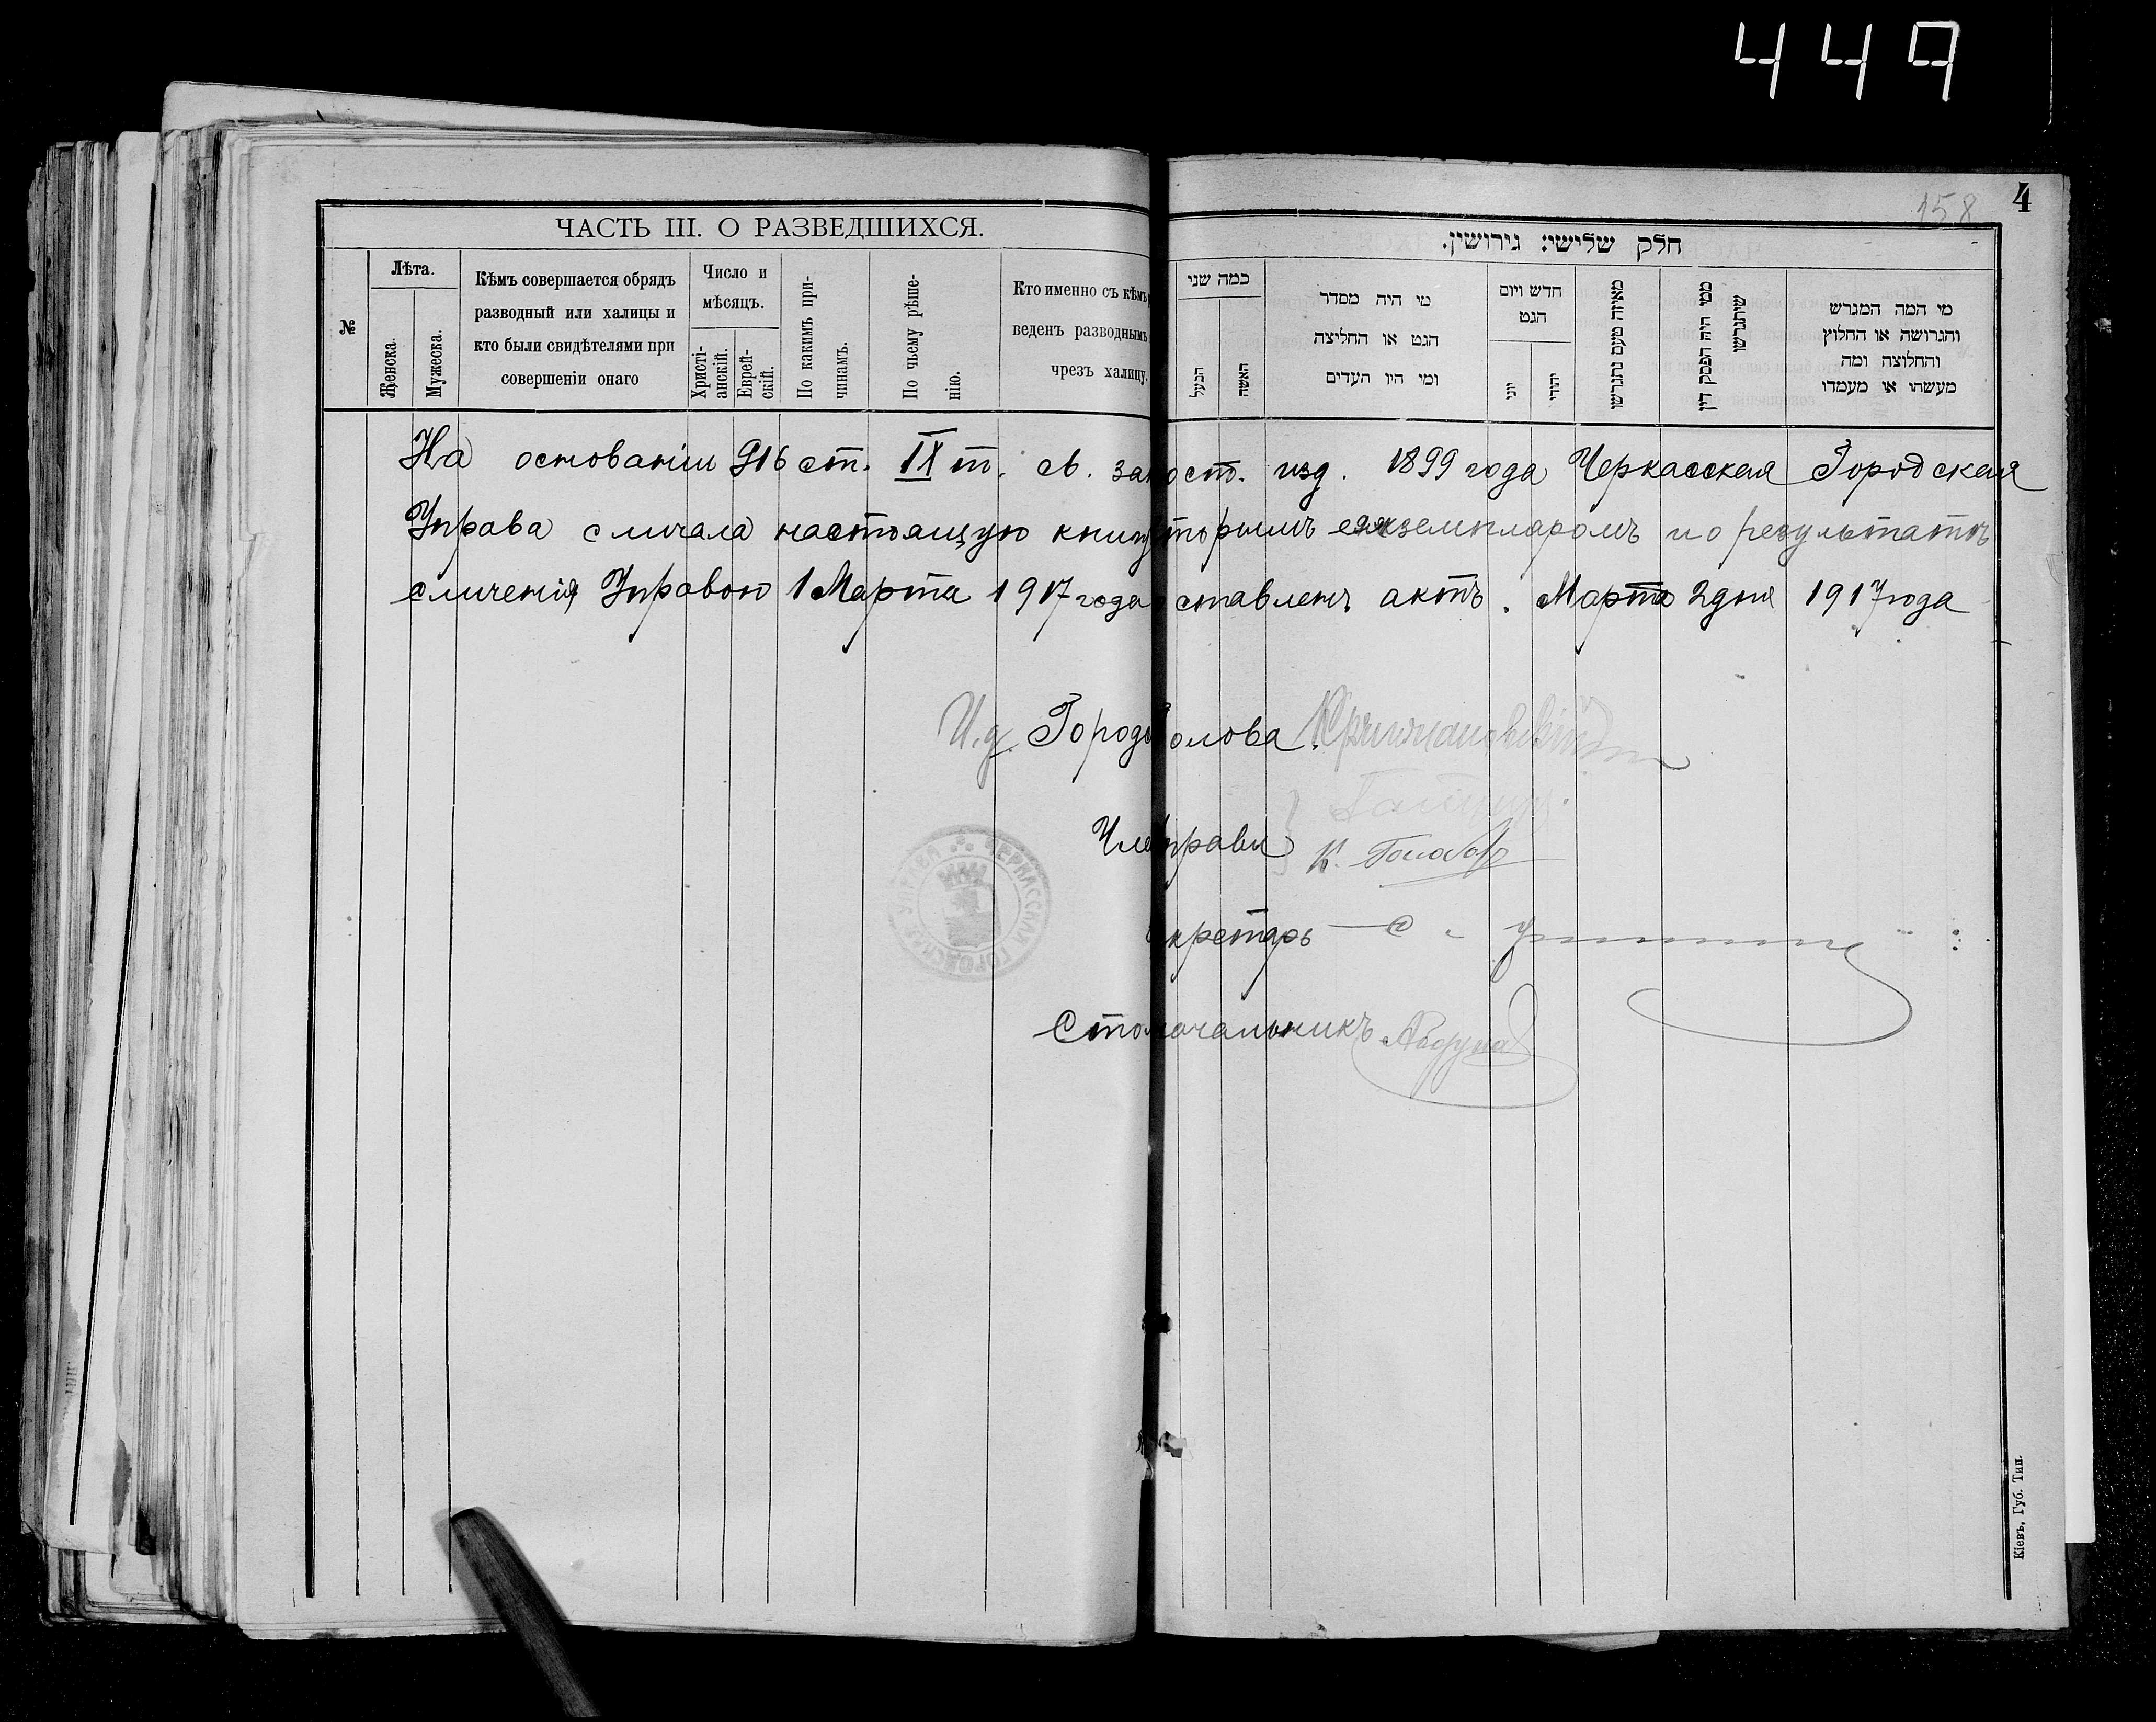 449
158
4
ЧАСТЬ III. О РАЗВЕДШИХСЯ.
№
Лѣта.
Женска.
Мужеска.
Кѣмъ совершается обрядъ
разводный или халицы и
кто были свидѣтелями при
совершеніи онаго
Число и
мѣсяцъ.
Христі-
анскій.
Еврей-
скій.
По какимъ при-
чинамъ.
По чьему рѣше-
нію.
Кто именно съ кѣмъ
веденъ разводнымъ
чрезъ халицу.
חלק שלישי: גירושין.
כמה שני
הבעל
האשה
מי היה מסדר
הגט או החליצה
ומי היו העדים
חדש ויום
הגט
יוני
יהודי
מאיזה טעם נתגרשו
ממי היה הפסק דין
שיתגרשו
מי המה המגרש
והגרושה או החלוץ
והחלוצה ומה
מעשהו או מעמדו
На основаніи 916 ст. IX т. св. зак ост. изд. 1899 года Черкасская Городская
Управа сличала настоящую книг торымъ экземпляромъ и о результатѣ
сличенія Управою 1 Марта 1917 года ставленъ актъ. Марта 2 дня 1917 года
И.д. Город олова
Чле правы
К.
кретарь
Столоначальникъ
ЧЕРКАССКАЯ ГОРОДСКАЯ УПРАВА
Кіевъ, Губ. Тип.